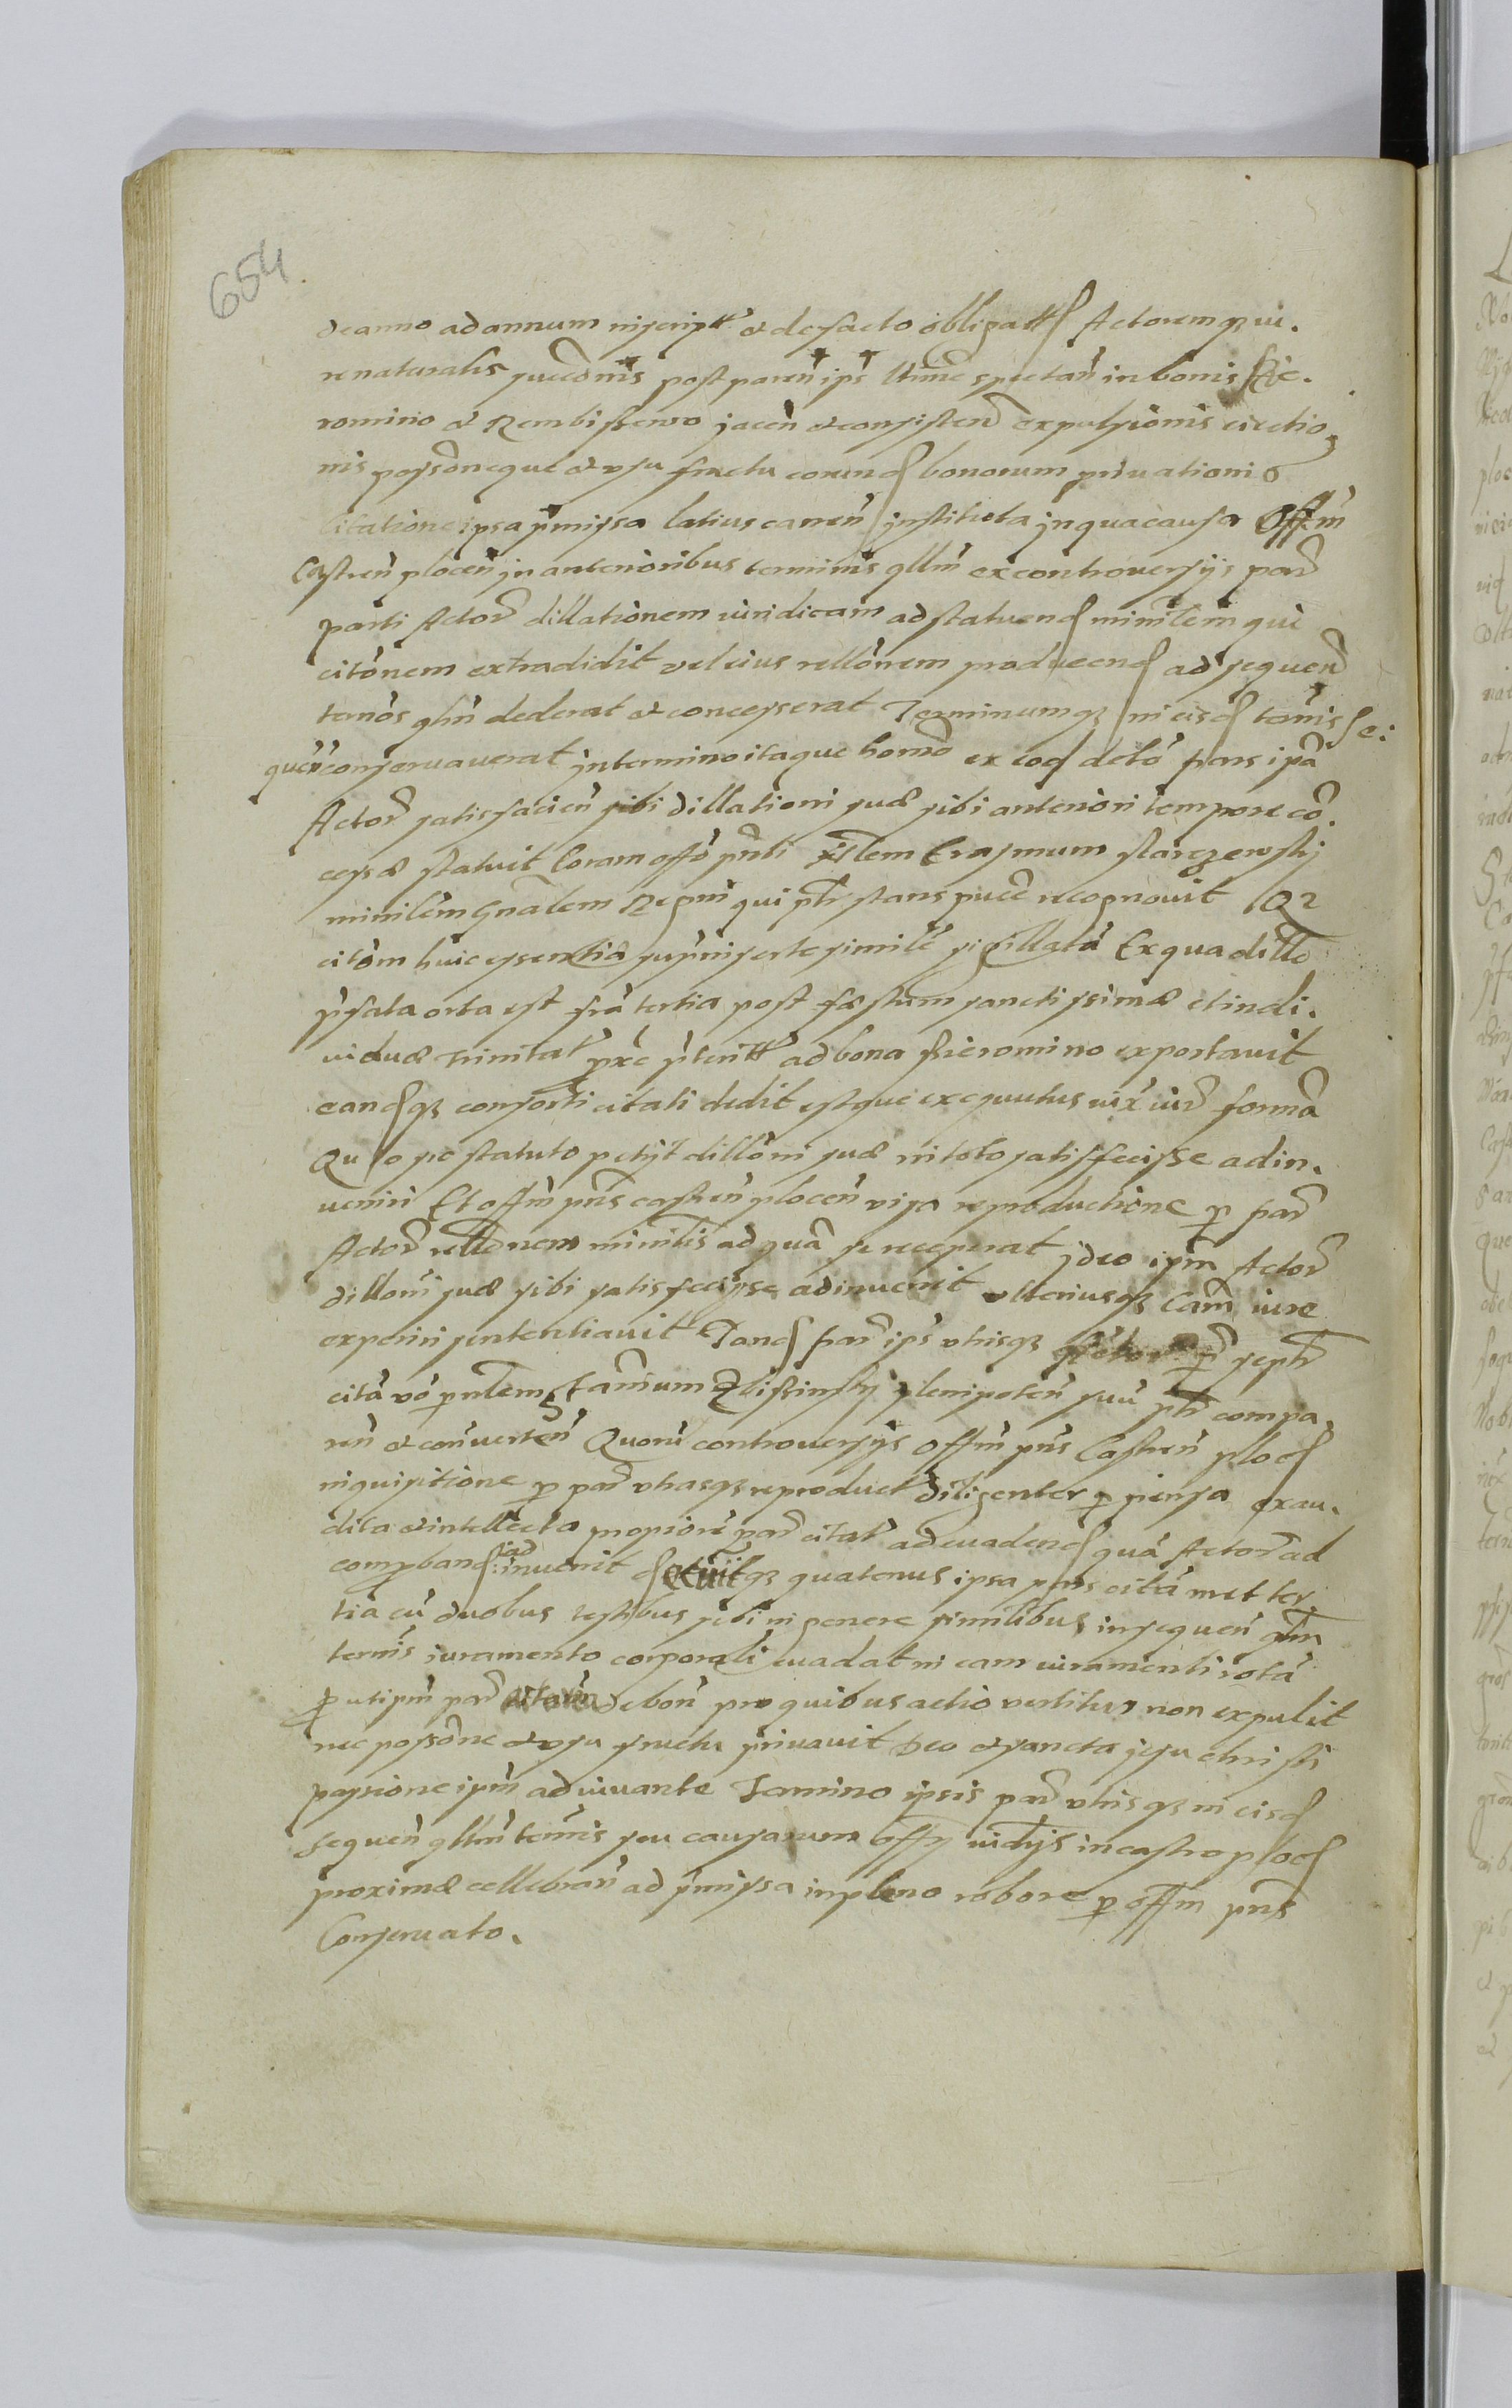 654
de anno ad annum inscript et de facto obligatt Actoremqz iu.
re naturalis successnis post paren ips ltime spectan in bonis Sie.
romino et Rembissewo jacen et consisten expulsionis eiectio
nis possoneque et usu fructu eorund bonorum privationis
Citatione ipsa pmissa latius canen instituta in qua causa Offm
Castren plocen in anterioribus terminis qllm ex controversijs par
parti Actor dillationem iuridicam ad statuend minilem qui
citonem extradidit vel eius rellonem producend ad sequen
ternos qlm dederat et concesserat Terminumqz in eisd termis se:
quen conservaverat in termino itaque horno ex eod dcto pars ipa
Actor satisfacien sibi dillationi suæ sibi anteriori tempore co.
cessæ statuit Coram offo pnti Erasmum
minilem Gnalem Regni qui ptr stans puce recognovit Qz
citom huic essentia sigillata Ex qua dille
psata orta est fra tertia post festum sanctissimæ et indi.
viduæ trinitat pxe pteritt ad bona Sieromino exportavit
eandqz consorti citati dedit estque exequutus iux iur forma
Quo sic statuto petijt dilloni suæ in toto satisfecisse adin.
veniri Et offm pns castren plocen visa reproductione p par
Actor rellonem minilis ad qua se receperat ideo ipm Actor
dilloni suæ sibi satisfecisse adinvenit ulteriusqz cam iure
experiri sententiavit Tand par ips utrisqz p septr
cita vo p plenipoten suu ptr compa
ren et converten Quoru controversijs Offm pns Castren plocd
inquisitione p par utrasqz reproduct diligenter p pensa exau.
dita et intellecta propiore par citat ad evadend qua Actor ad
comprband invenit quatenus ipsa pars cita met ter
tia cu duobus testibus sibi in genere similibus in sequen qlm
termis iuramento corporali evadat in eam iuramenti rota
p ut ipm par de bon pro quibus actio vertitur non expulit
nec possone et usu fructu privavit Deo et sancta jesu christi
passione ipm adiuvante Termino ipsis par utrisqz in eisd
sequen qllm termis seu causarum offij iudijs in castro plocd
proxime cellebran ad pmissa in pleno robore p offm pns
Conservato.